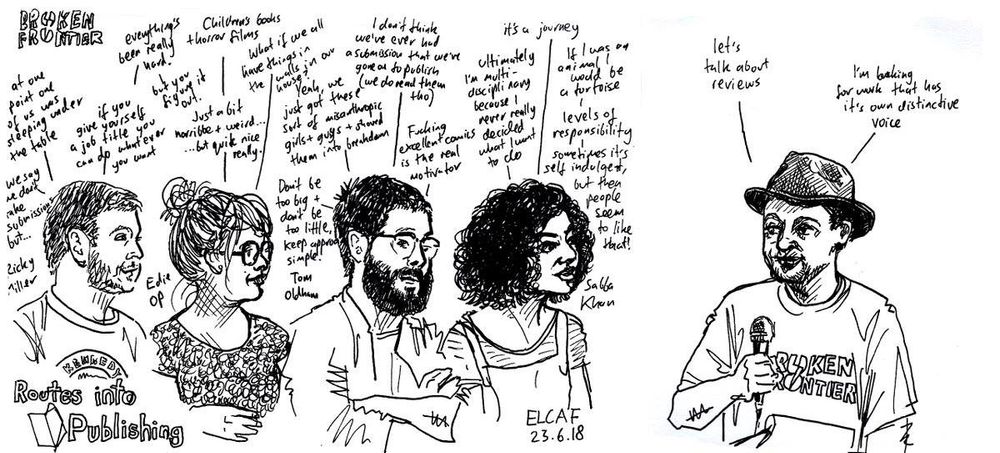 BROKEN
FRONTIER
at one
point one
of us was
sleeping under
the table
we say
we don't
take
submissions
but...
Ricky
Miller
everything's
been really
hard.
but you
figure it
out.
if you
give yourself
a job title you
can do whatever
you want
Children's books
+ horror films
Just a bit
horrible + weird...
...but quite nice
really.
Edie
OP
What if we all
have things in
the walls in our
houses?
Yeah, we
just got these
sort of misanthropic
girls + guys + shoved
them into breakdown
I don't think
we've ever had
a submission that we've
gone on to publish
(we do read them
tho)
Fucking
excellent comics
is the real
motivator
Don't be
too big +
don't be
too little,
keep approach
simple!
Tom
Oldham
it's a journey
ultimately
I'm multi-
disciplinary
because I
never really
decided
what I want
to do
If I was an
animal I
would be
a tortoise
levels of
responsibility
sometimes it's
self indulgent,
but then
people
seem
to like
that!
Sabba
Khan
let's
talk about
reviews
I'm looking
for work that has
it's own distinctive
voice
BROKEN
FRONTIER
Routes into
Publishing
ELCAF
23.6.18